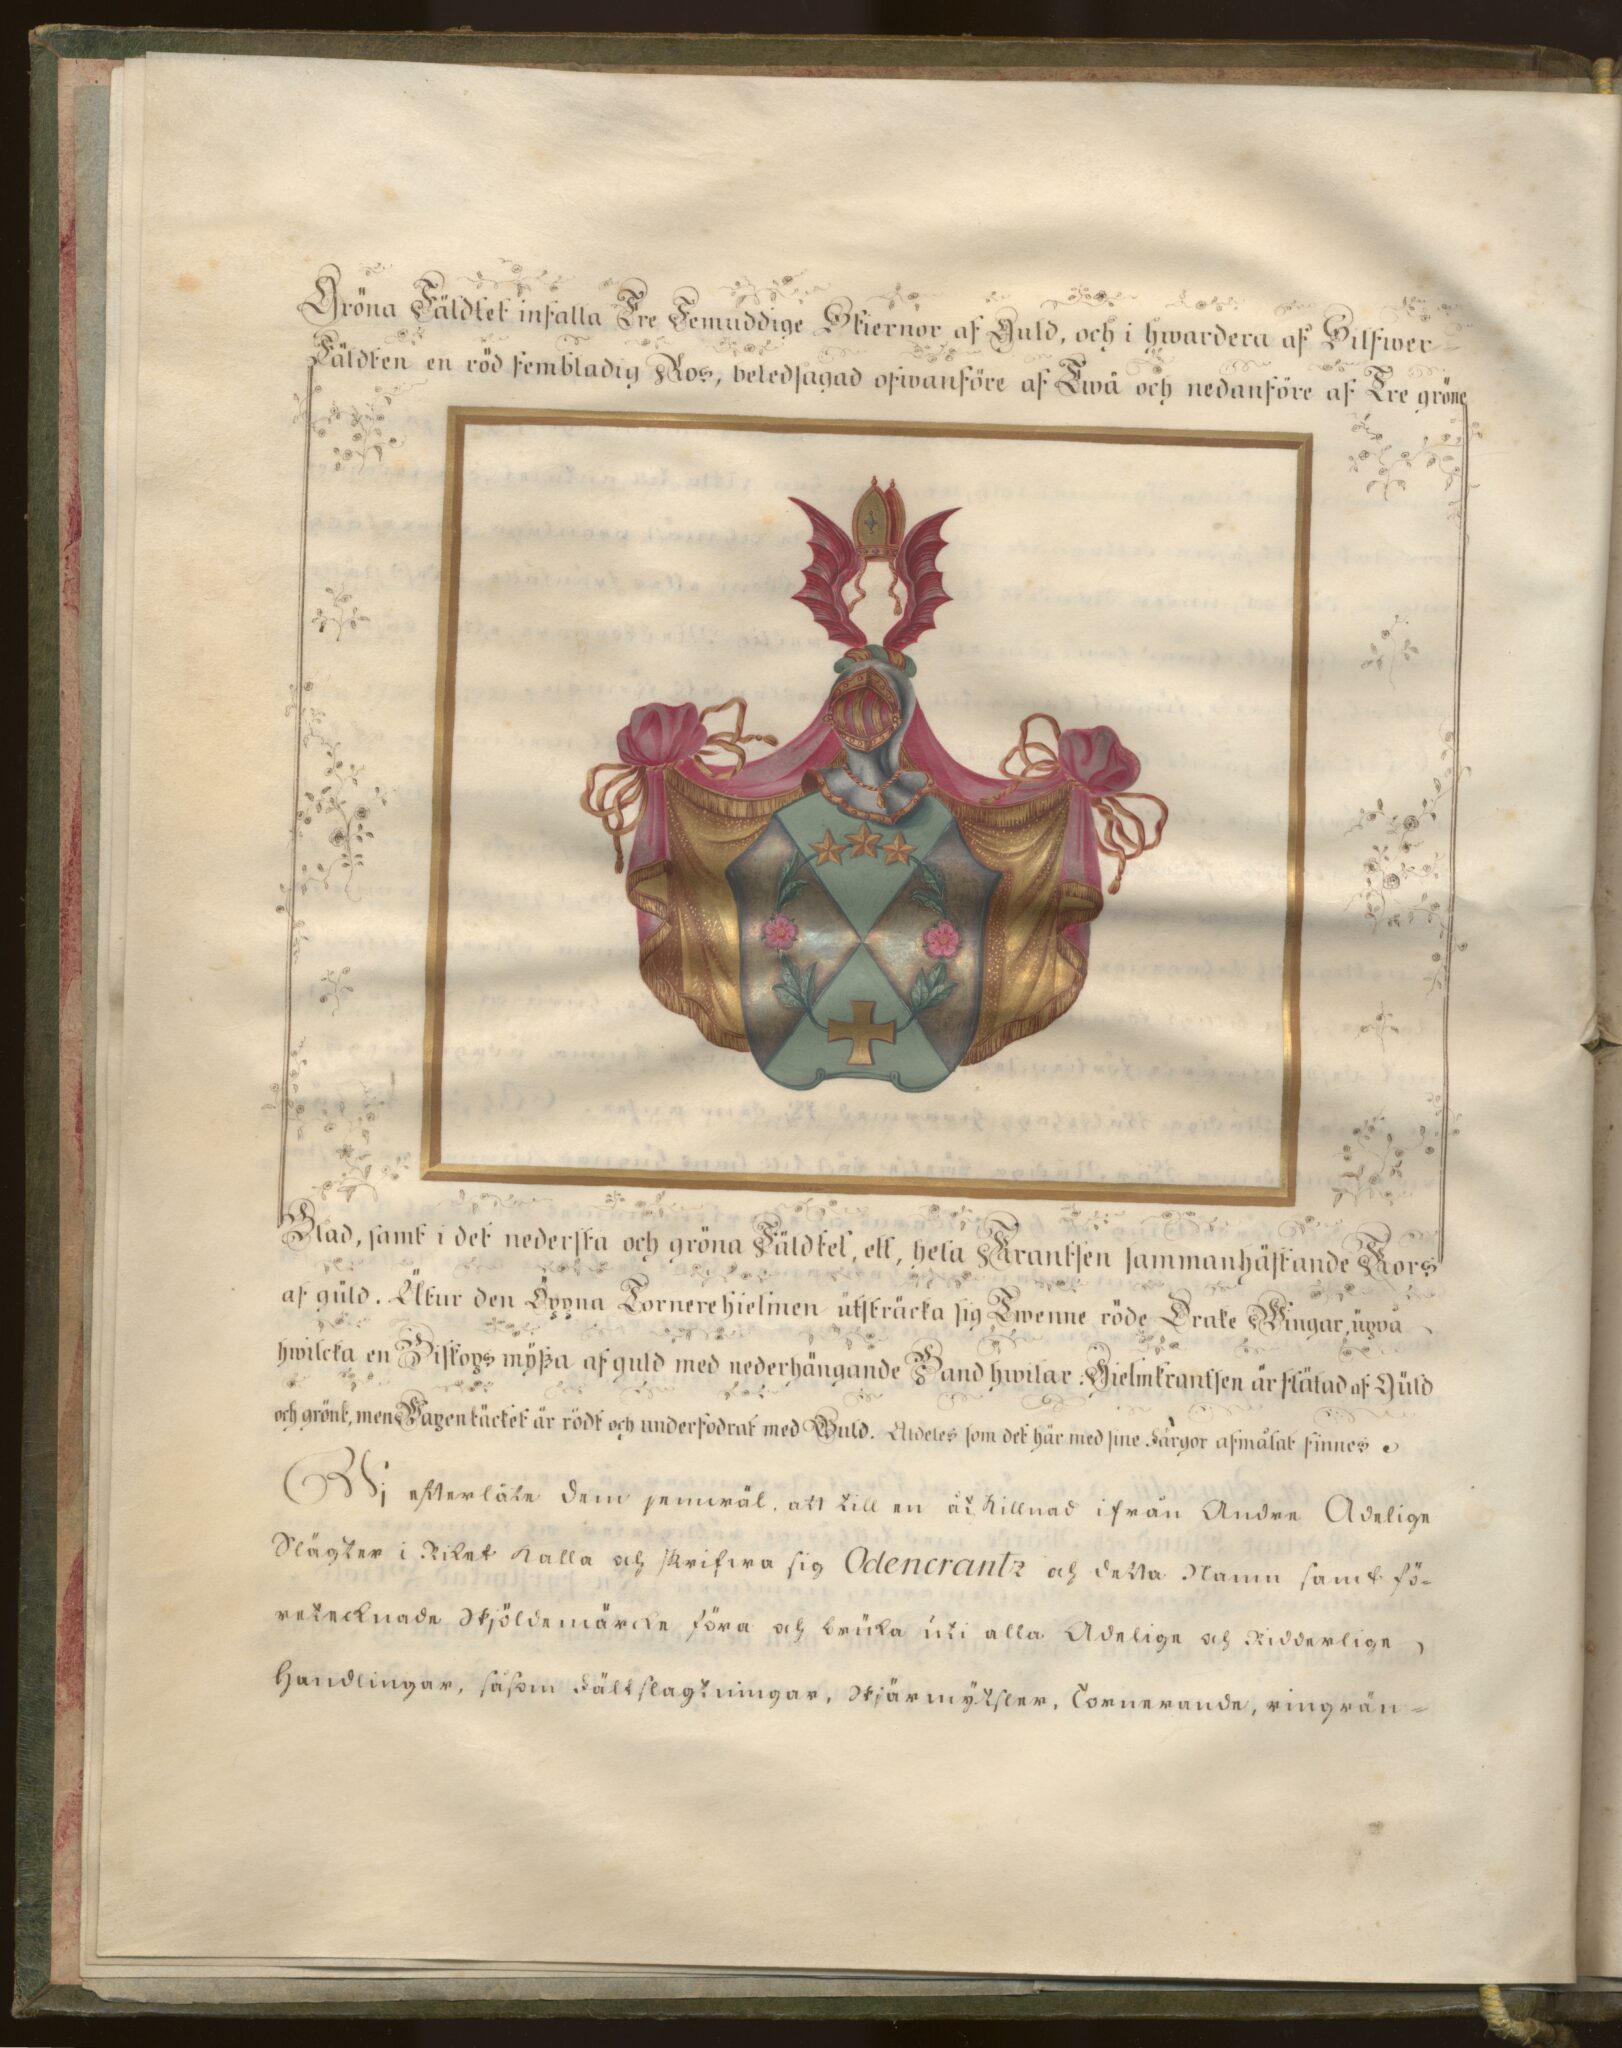 Gröna Fäldtet infalla Tre Femuddige Stiernor af Guld, och i hwardera af Silfwer-
Fäldten en röd fembladig Ros, beledsagad ofwanföre af Twå och nedanföre af Tre gröne
Blad, samt i det nedersta och gröna Fäldtet, ett, hela Krantsen sammanhäftande Kors
af guld. Utur den Öppna Tornerehielmen utsträcka sig Twenne röde Drake Wingar, uppå
hwilcka en Biskops mÿßa af guld med nederhängande Band hwilar: Hielmkrantsen är flätad af Guld
och grönt, men Wapentäcket är rödt och underfodrat med Guld. Aldeles som det här med sine Färgor afmålat finnes.
Wj efterläte dem jemwäl, att till en åtskillnad ifrån Andre Adelige
Slägter i Riket kalla och skrifwa sig Odencrantz och detta Namn samt fö-
retecknade Skjöldemärcke föra och bruka uti alla Adelige och Ridderlige
Handlingar, såsom Fältslagtningar, Skjärmÿtsler, Tornerande, ringrän-